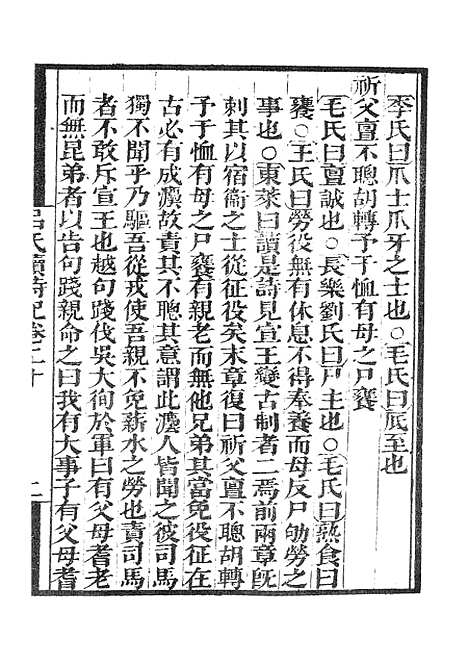 李氏曰爪士爪牙之士也○毛氏曰厎至也
祈父亶不聰胡轉予于恤有母之尸饔
毛氏曰亶誠也○長樂劉氏曰尸主也○毛氏曰熟食曰
饔○王氏曰勞役無有休息不得奉養而母反尸劬勞之
事也○東萊曰讀是詩見宣王變古制者二焉前兩章旣
刺其以宿衞之士從征役矣末章復曰祈父亶不聰胡轉
予于恤有母之尸饔有親老而無他兄弟其當免役征在
古必有成灋故責其不聰其意謂此灋人皆聞之彼司馬
獨不聞乎乃驅吾從戎使吾親不免薪水之勞也責司馬
者不敢斥宣王也越句踐伐吳大徇於軍曰有父母耆老
而無昆弟者以告句踐親命之曰我有大事子有父母耆
呂氏讀詩記卷二十 二